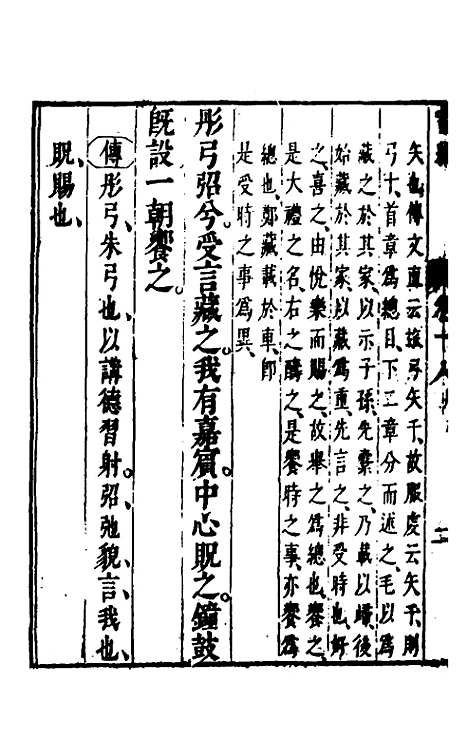 矢也、傳文直云玈弓矢千、故服虔云矢千、則
弓十、首章爲總目、下二章分而述之、毛以爲
藏之於其家、以示子孫、先櫜之、乃載以歸、後
始藏於其家、以藏爲重、先言之、非受時也、好
之、喜之、由悅樂而賜之、故舉之爲總也、饗之
是大禮之名、右之醻之、是饗時之事、亦饗爲
總也、鄭藏載於車、卽
是受時之事爲異、
彤弓弨兮。受言藏之。我有嘉賓。中心貺之。鐘鼓
旣設一朝饗之。
傳彤弓、朱弓也、以講德習射。弨、弛貌、言、我也、
貺、賜也、